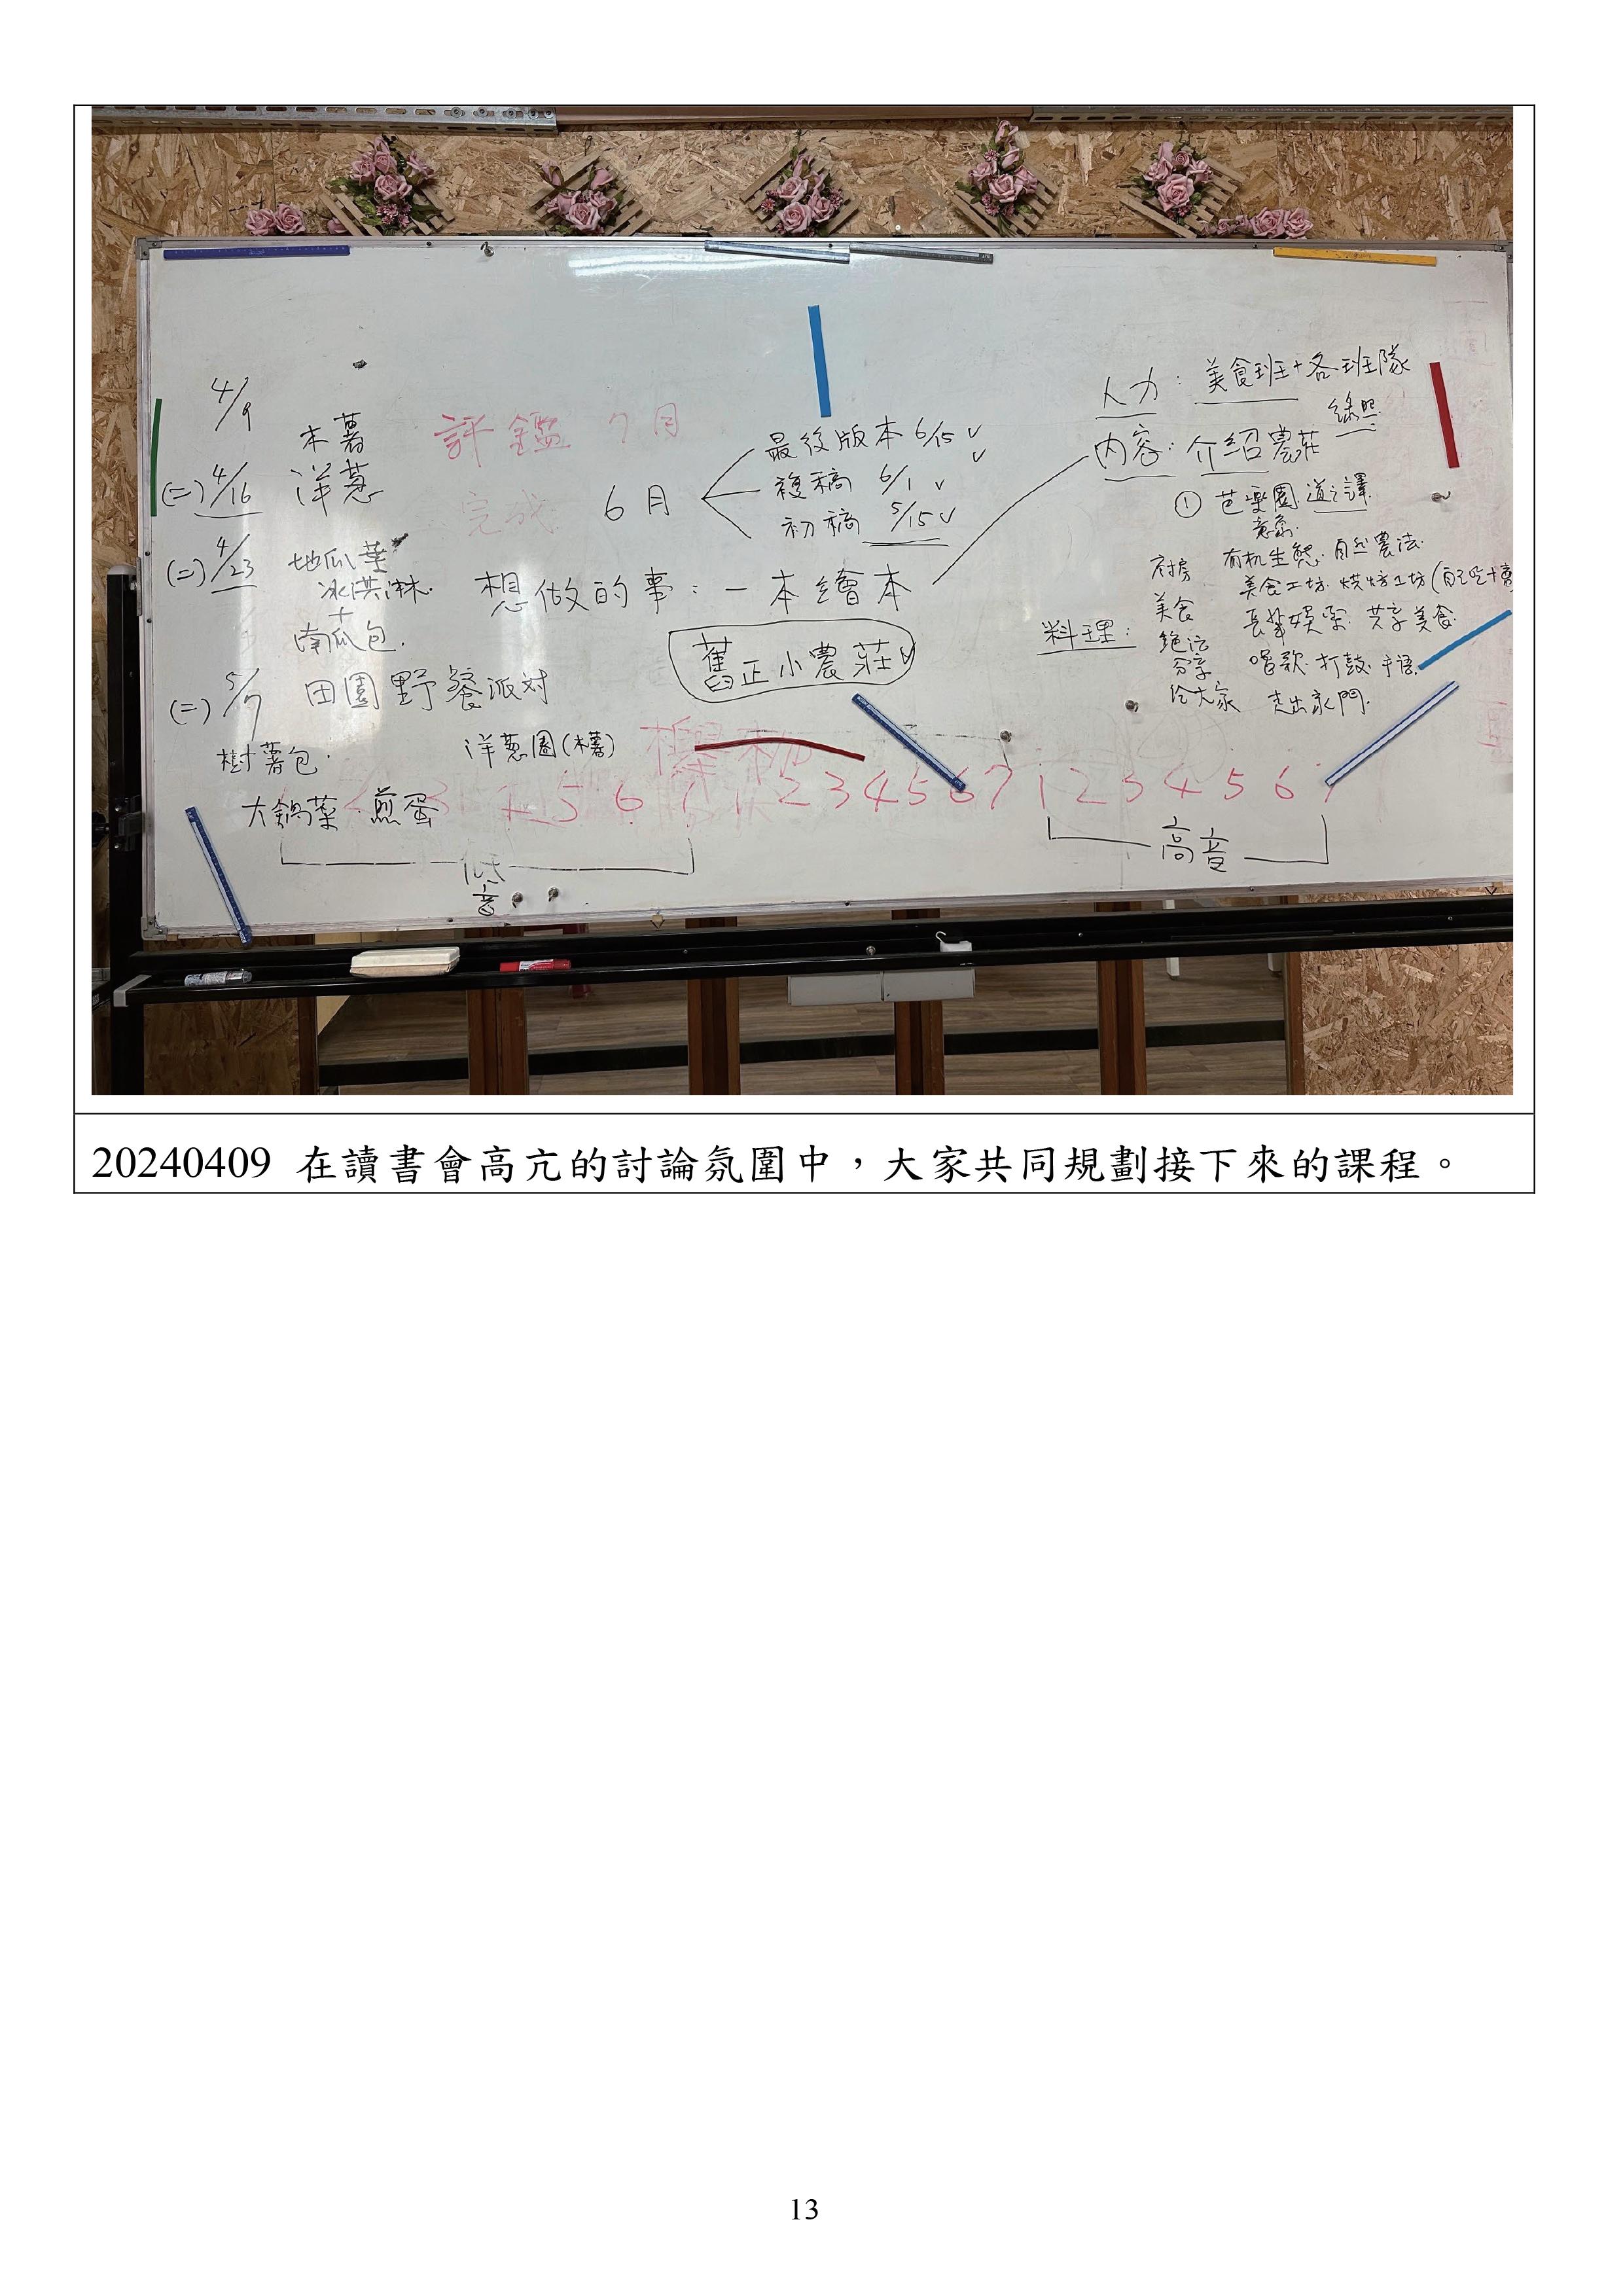 4/9
木薯
(二) 4/16 洋蔥
(二) 4/23 地瓜葉
冰淇淋
+
南瓜包.
(二) 5/7 田園野餐派对
樹薯包.
洋蔥圈(木薯)
大鍋菜 煎蛋
評鑑 7月
完成 6月
最後版本 6/15 ✓
複稿 6/1 ✓
初稿 5/15 ✓
想做的事：一本繪本
舊正小農莊
人力：美食班+各班隊
綠照
內容：介紹農莊
① 芭樂園
有机生態. 自然農法.
美食工坊. 烘焙工坊
長輩娛樂. 共享美食
唱歌. 打鼓. 手語.
走出家門.
料理：
美食
分享
給大家
5 6 1 2 3 4 5 6 7 1 2 3 4 5 6 7
低音
高音
20240409 在讀書會高亢的討論氛圍中，大家共同規劃接下來的課程。
13